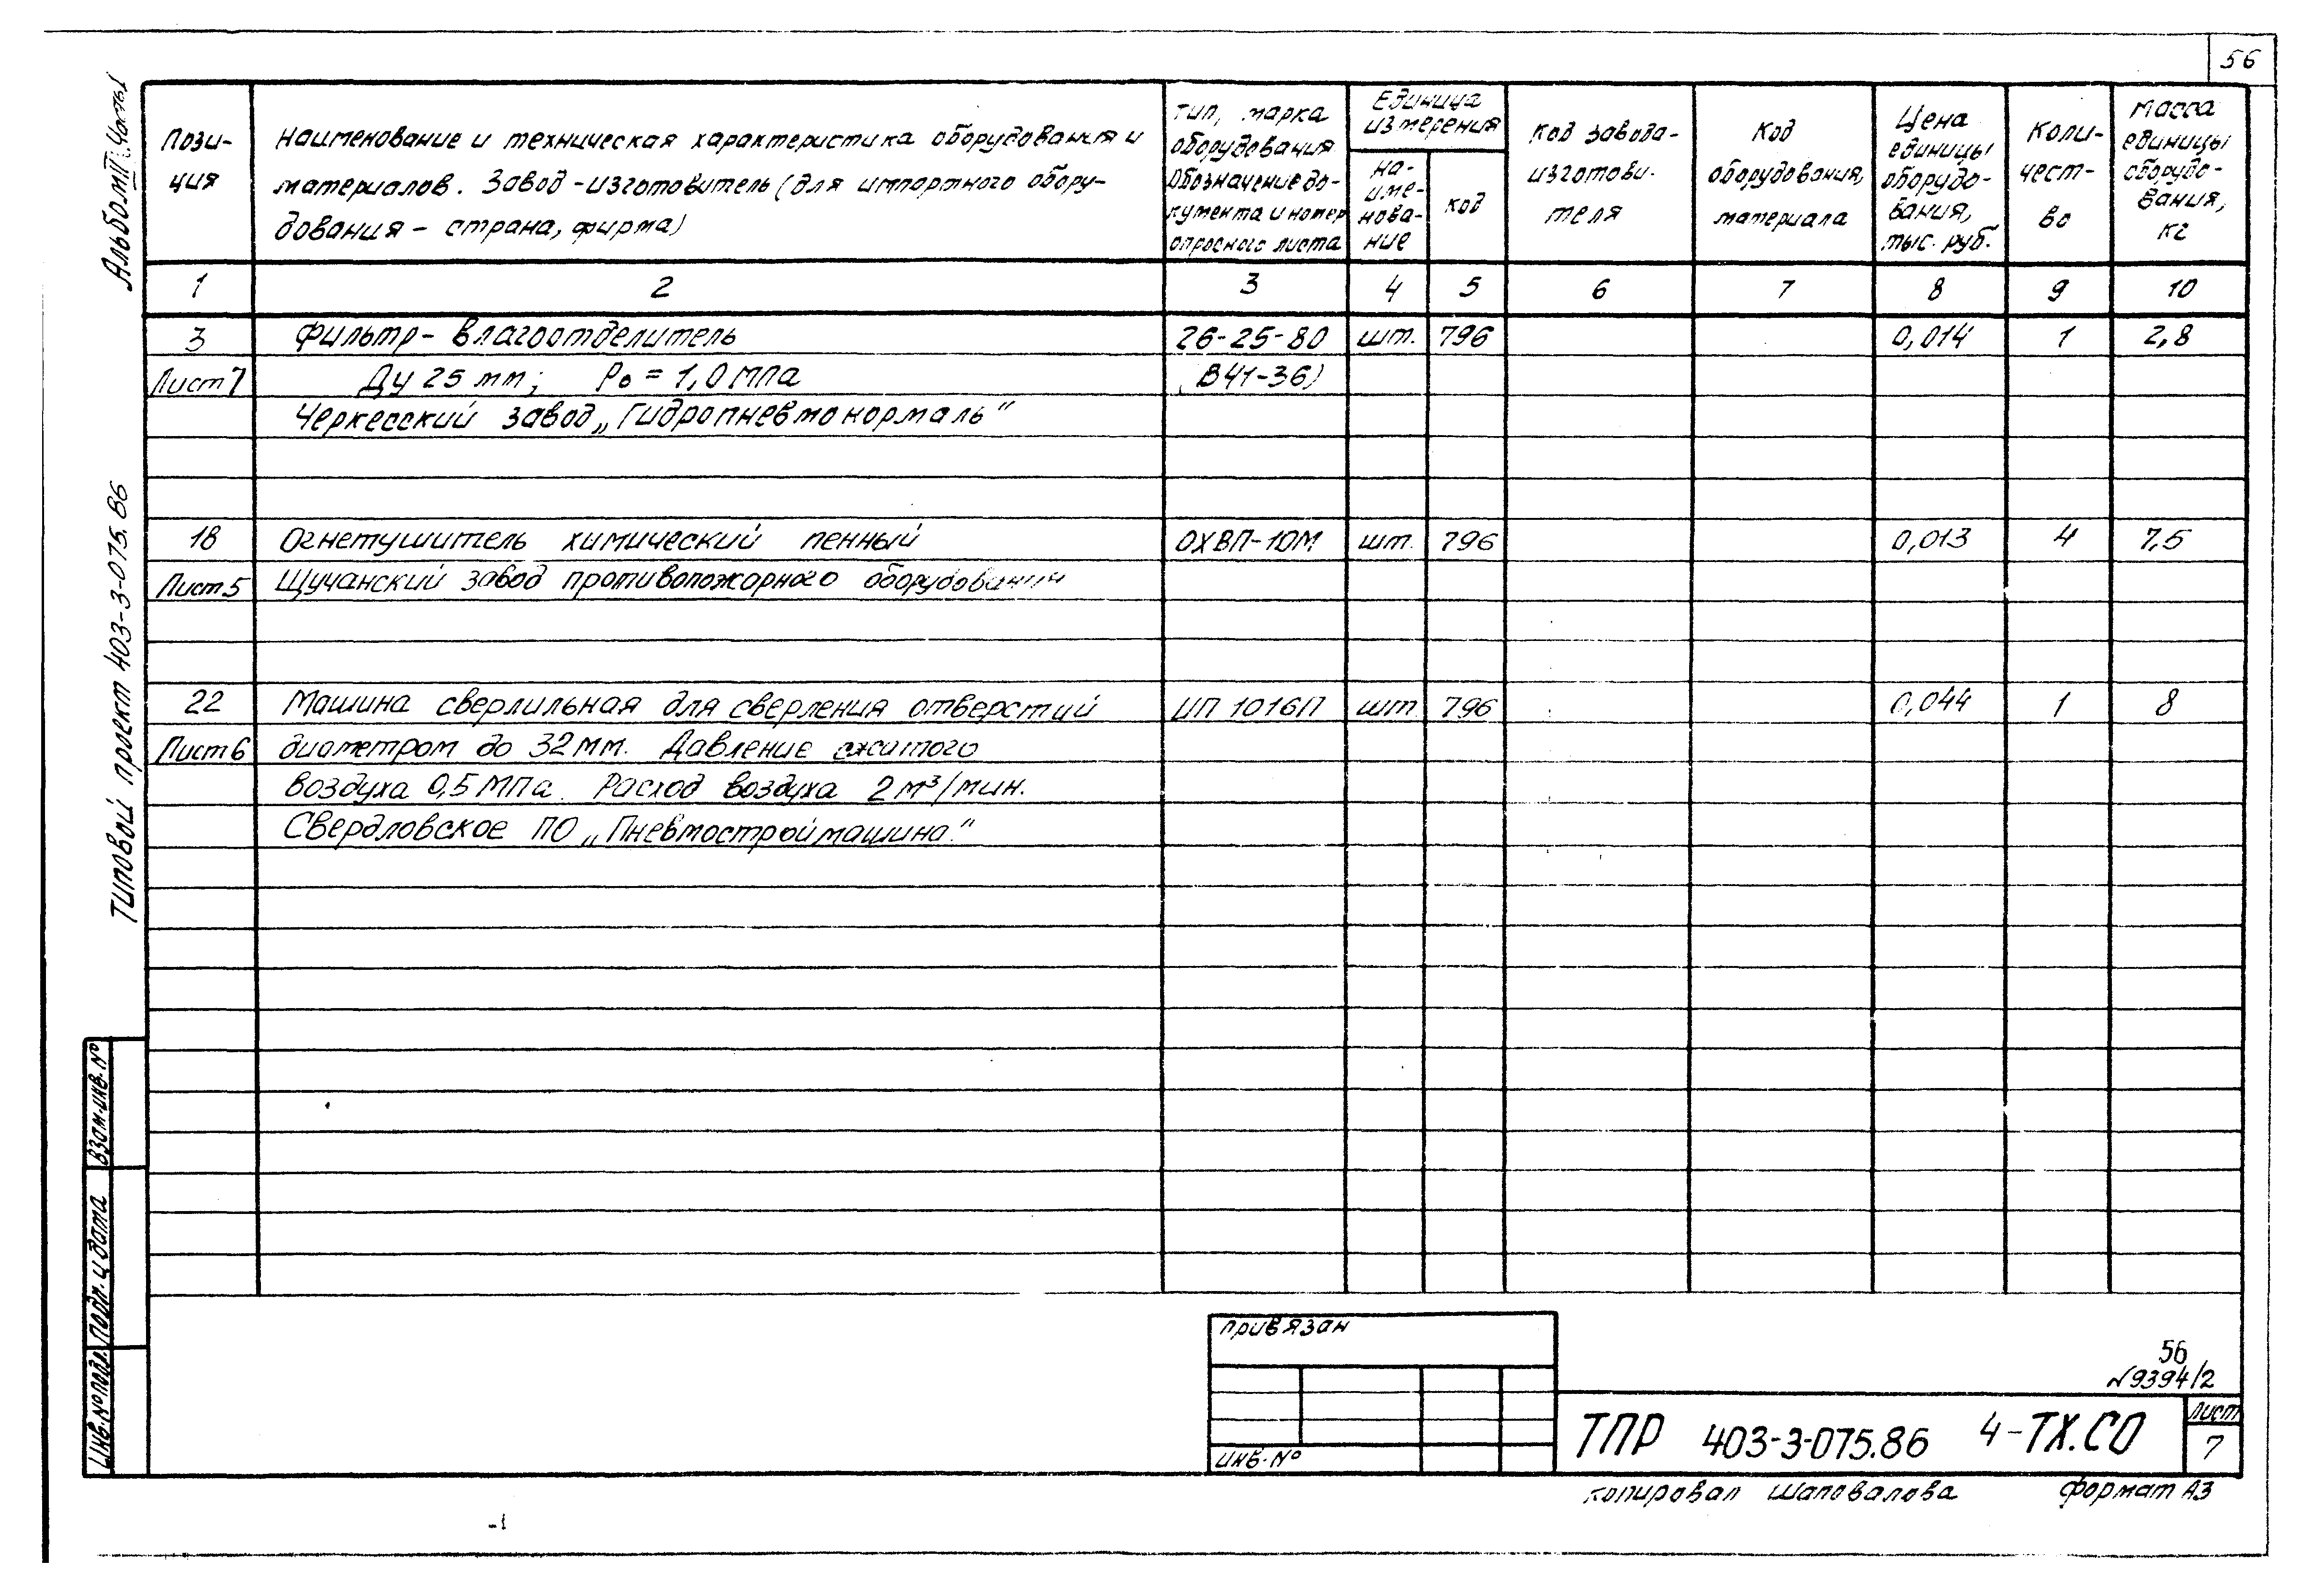 56
Альбом III, Часть 1
Типовой проект 403-3-075.86
Пози-
ция
Наименование и техническая характеристика оборудования и
материалов. Завод-изготовитель (для импортного обору-
дования - страна, фирма)
Тип, марка
оборудования
Обозначение до-
кумента и номер
опросного листа
Единица
измерения
на-
име-
нова-
ние
код
Код завода-
изготови-
теля
Код
оборудования,
материала
Цена
единицы
оборудо-
вания,
тыс. руб.
Коли-
чест-
во
Масса
единицы
оборудо-
вания,
кг
1 2 3 4 5 6 7 8 9 10
3 Фильтр-влагоотделитель 26-25-80 шт. 796 0,014 1 2,8
Лист 7 Ду 25 мм; Ро = 1,0 МПа (В41-36)
Черкесский завод „Гидропневмонормаль"
18 Огнетушитель химический пенный ОХВП-10М шт. 796 0,013 4 7,5
Лист 5 Щучанский завод противопожарного оборудования
22 Машина сверлильная для сверления отверстий ИП 1016П шт 796 0,044 1 8
Лист 6 диаметром до 32 мм. Давление сжатого
воздуха 0,5 МПа. Расход воздуха 2 м³/мин.
Свердловское ПО „Пневмостроймашина."
Взам.инв.№
Подп. и дата
Инв.№подл.
Привязан
Инв.№
56
19394/2
ТПР 403-3-075.86 4-ТХ.СО
Лист
7
Копировал Шаповалова Формат А3
-1